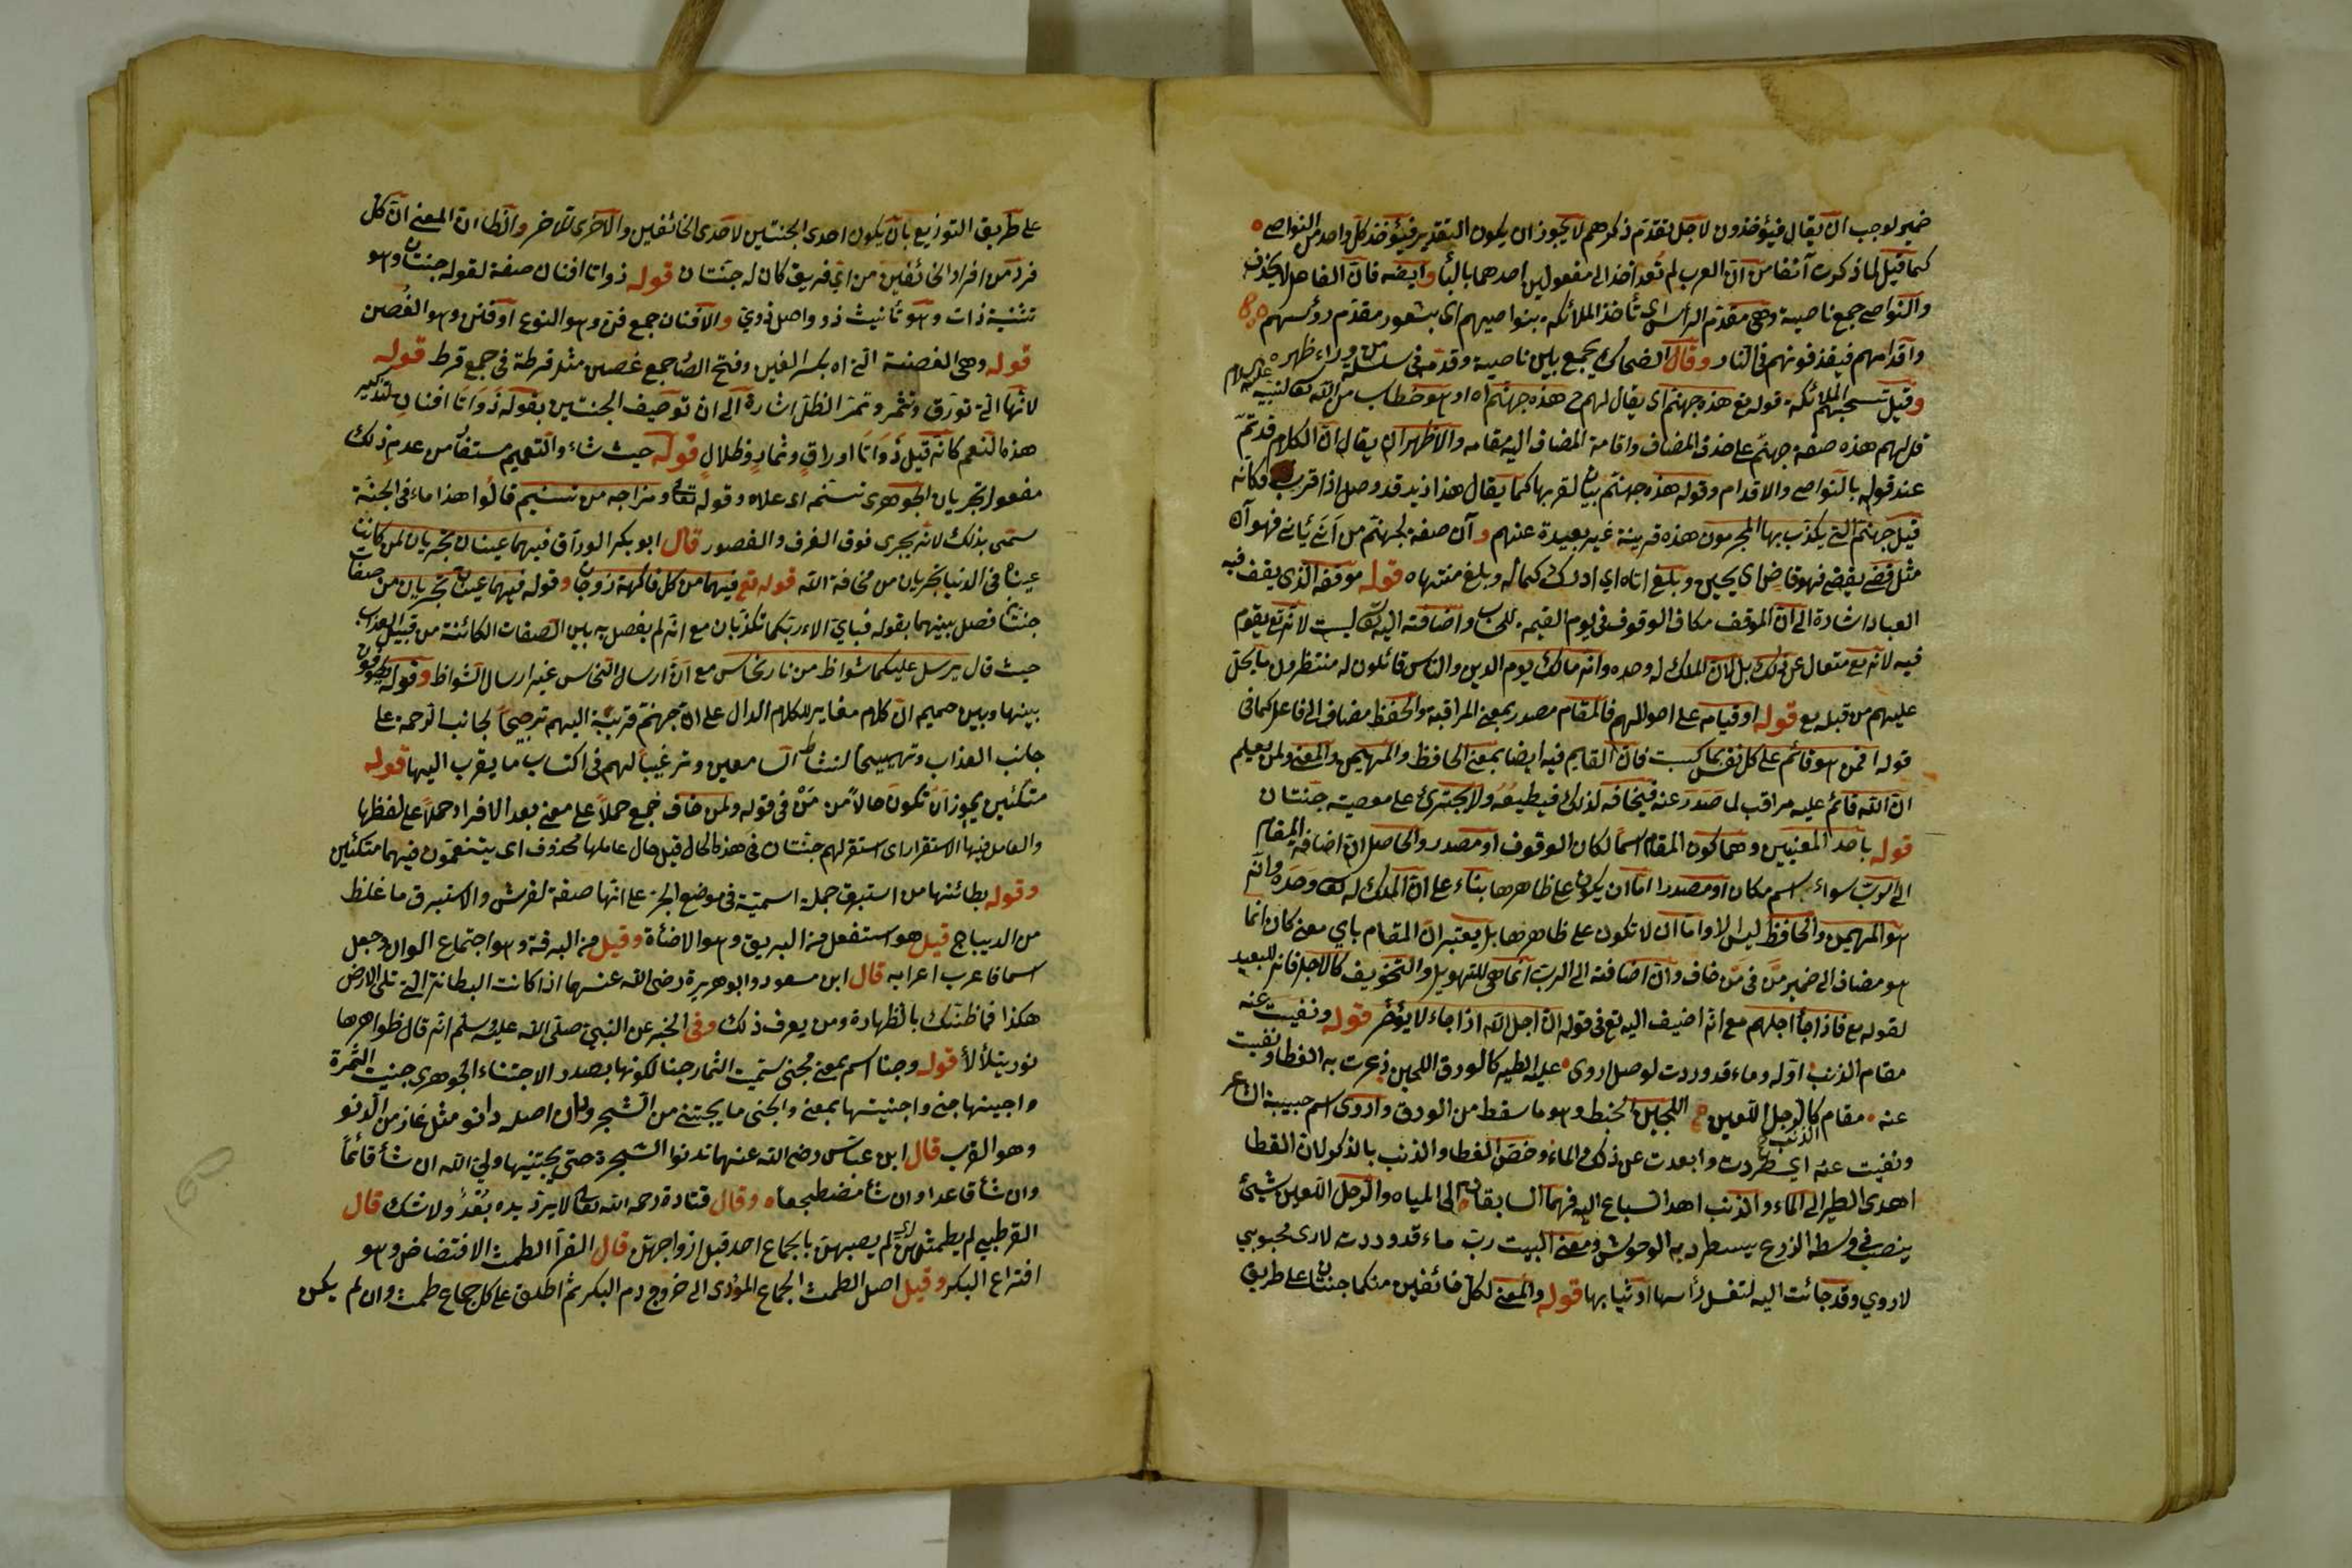 ضمير لوجب ان يقال فيؤخذون لاجل تقدّم ذكرهم لا يجوز ان يكون التقدير فيؤخذ كل واحد من النواصى
كما قيل لما ذكرت آنفا من ان العرب لم تُعدّ اخذ الى مفعولين احدهما بالبأ وايضه فان الفاعل لا يحذف
والنواصى جمع ناصية وهى مقدّم الرأس اى تأخذ الملائكة بنواصيهم اى بشعور مقدّم رؤسهم
واقدامهم فيقذفونهم فى النار وقال الضحاك يجمع بين ناصية وقدمه فى سلسلة من وراء ظهره
وقيل تسحبهم الملائكة قوله تع هذه جهنم اى يقال لهم هذه جهنم اه او هو خطاب من الله تعه لنبيه عليه السلام
قل لهم هذه صفة جهنم على حذف المضاف واقامة المضاف اليه مقامه والاظهر ان يقال ان الكلام قد تمّ
عند قوله بالنواصى والاقدام وقوله هذه جهنم بيان لقربها كما يقال هذا زيد قد وصل اذا قرب وكانه
قيل جهنم التى يكذب بها المجرمون هذه قريبة غير بعيدة عنهم وآن صفة لجهنم من أنى يأنى فهو آن
مثل قضى يقضى فهو قاض اى يحين وبلغ اناه اي ادرك كماله وبلغ منتهاه قوله موقفه الذى يقف فيه
العباد اشارة الى ان الموقف مكان الوقوف فى يوم القيمة للحساب واضافته اليه تعه ليست لانه تع يقوم
فيه لانه تع متعال عن ذلك بل لان الملك له وحده وانه مالك يوم الدين والناس قائلون له منتظرون ما يحل
عليهم من قبله تع قوله او قيامه على احوالهم فالمقام مصدر بمعنى المراقبة والحفظ مضاف الى فاعل كما فى
قوله افمن هو قائم على كل نفس بما كسبت فان القايم فيه ايضا بمعنى الحافظ والمهيمن والمعنى ولمن يعلم
ان الله قائم عليه مراقب لما صَدَرَ عنه فيخافه لذلك فيطيعُهُ ولا يجترئ على معصيته جنتان
قوله باحد المعنيين وهما كون المقام اسمًا لمكان الوقوف او مصدر والحاصل ان اضافة المقام
الى الرب سواء اسم مكان او مصدرا اما ان يكون على ظاهرها بناء على ان الملك له تعه وحده وانه
هو المهيمن والحافظ ليس الا واما ان لا تكون على ظاهرها بل يعتبر ان المقام باي معنى كان انما
هو مضاف الى ضمير مَن فى مَن خاف وان اضافته الى الرب انما هى للتهويل والتخويف كالاجل فانه للعبد
لقوله تع فاذا جأ اجلهم مع انه اضيف اليه تع فى قوله ان اجل الله اذا جاء لا يؤخر قوله ونفيت عنه
مقام الذئب اوّله وماء قد وردت لوصل اروى عليه الطير كالورق اللجين ذعرت به القطا ونفيت
عنه مقام كالرجل اللعين اللجين الخبط وهو ما سقط من الورق واروى اسم حبيبة الشاعر
ونفيت عنه الذئب اي طردت وابعدت عن ذلك الماء وخص القطا والذئب بالذكر لان القطا
اهدى الطير الى الماء والذئب اهد السباع اليه فهما السابقان الى المياه والرجل اللعين شيئ
ينصب فى وسط الزرع يسطرد به الوحوش ومعنى البيت رب ماء قد وردت لارى محبوبى
لاروي وقد جائت اليه لتغسل رأسها او ثيابها قوله والمعنى لكل خائفين منكما جنتان على طريق
على طريق التوزيع بان يكون احدى الجنتين لاحدى الخائفين والاخرى للاخر والظا ان المعنى ان كل
فرد من افراد الخائفين من اى فريق كان له جنتان قوله ذواتا افنان صفة لقوله جنتان وهو
تثنية ذات وهو تأنيث ذو واصل ذوي والافنان جمع فن وهو النوع او فنن وهو الغصن
قوله وهى الغصنة التى اه بكسر الغين وفتح الصا جمع غصن مثل قرطة فى جمع قرط قوله
لانها التى تورق وتثمر وتمد الظل اشارة الى ان توصيف الجنتين بقوله ذَوَاتَا افنان لتذكير
هذه النعم كانه قيل ذَوَاتَا اوراقٍ وثمارٍ وظلالٍ قوله حيث شاء والتعميم مستفا من عدم ذلك
مفعول تجريان الجوهرى تسنّمه اى علاه وقوله تعا ومزاجه من تسنيم قالوا هذا ماء فى الجنّة
سمّى بذلك لانه يجرى فوق الغرف والقصور قال ابو بكر الوراق فيهما عينان تجريان لمن كانت
عينا فى الدنيا تجريان من مخافة الله قوله تع فيهما من كل فاكهة زوجان وقوله فيهما عينان تجريان من صفات
جنتا فصل بينهما بقوله فباي الاء ربكما تكذبان مع انه لم يفصل به بين الصفات الكائنة من قبيل العذاب
حيث قال يرسل عليكما شواظ من نار نحاس مع ان ارسال النحاس غير ارسال الشواظ وقوله يطوفون
بينها وبين حميم ان كلام مغاير للكلام الدال على ان جهنم قريبة اليهم ترجيحًا لجانب الرحمة على
جانب العذاب وتهييجًا لنشاط السامعين وترغيبًا لهم فى اكتساب ما يقرب اليها قوله
متكئين يجوز ان تكون حالاً من مَنْ فى قوله ولمن خاف جمع حملاً على معنى بعد الافراد حملاً على لفظها
والعامل فيها الاستقرار اى استقر لهم جنتان فى هذه الحال قيل حال عاملها محذوف اى يتنعمون فيهما متكئين
وقوله بطائنها من استبرق جملة اسميّة فى موضع الجر على انها صفة لفرش والاستبرق ما غلظ
من الديباج قيل هو استفعل من البريق وهو الاضاءة وقيل من البرقة وهو اجتماع الوان وجعل
اسما فاعرب اعرابه قال ابن مسعود وابو هريرة رضى الله عنهما اذا كانت البطانة التى تلى الارض
هكذا فما ظنّك بالظهارة ومن يعرف ذلك وفى الخبر عن النبي صلى الله عليه وسلم انه قال ظواهرها
نور يتلألأ قوله وجنا اسم بمعنى مجنى سميت الثمار جنا لكونها بصدد الاجتناء الجوهرى جنيت الثمرة
واجنيها جنى واجنيتها بمعنى والجنى ما يجتنى من الشجر ودان اصله دانو مثل غاز من الدنو
وهو القرب قال ابن عباس رضى الله عنهما تدنوا الشجرة حتى يجتنيها ولي الله ان شأ قائماً
وان شأ قاعدا وان شأ مضطجعا وقال قتادة رحمه الله تعا لا يرد يده بُعْدٌ ولا شك قال
القرطبى لم يطمثهن اى لم يصبهن بالجماع احد قبل ازواجهن قال الفرّا الطمث الافتضاض وهو
افتراع البكر وقيل اصل الطمث الجماع المؤدى الى خروج دم البكر ثم اطلق على كل جماع طمث وان لم يكن